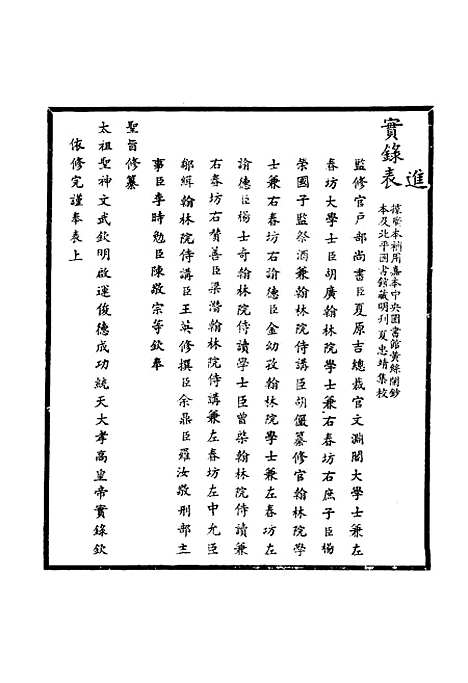 進
實錄表
據廣本補用嘉本中央圖書館黃絲闌鈔
本及北平圖書館藏明刊夏忠靖集校
監修官戶部尚書臣夏原吉總裁官文淵閣大學士兼左
春坊大學士臣胡廣翰林院學士兼右春坊右庶子臣楊
榮國子監祭酒兼翰林院侍講臣胡儼纂修官翰林院學
士兼右春坊右諭德臣金幼孜翰林院學士兼左春坊左
諭德臣楊士奇翰林院侍讀學士臣曾棨翰林院侍讀兼
右春坊右贊善臣梁潛翰林院侍講兼左春坊左中允臣
鄒緝翰林院侍講臣王英修撰臣余鼎臣羅汝敬刑部主
事臣李時勉臣陳敬宗等欽奉
聖旨修纂
太祖聖神文武欽明啟運俊德成功統天大孝高皇帝實錄欽
依修完謹奉表上